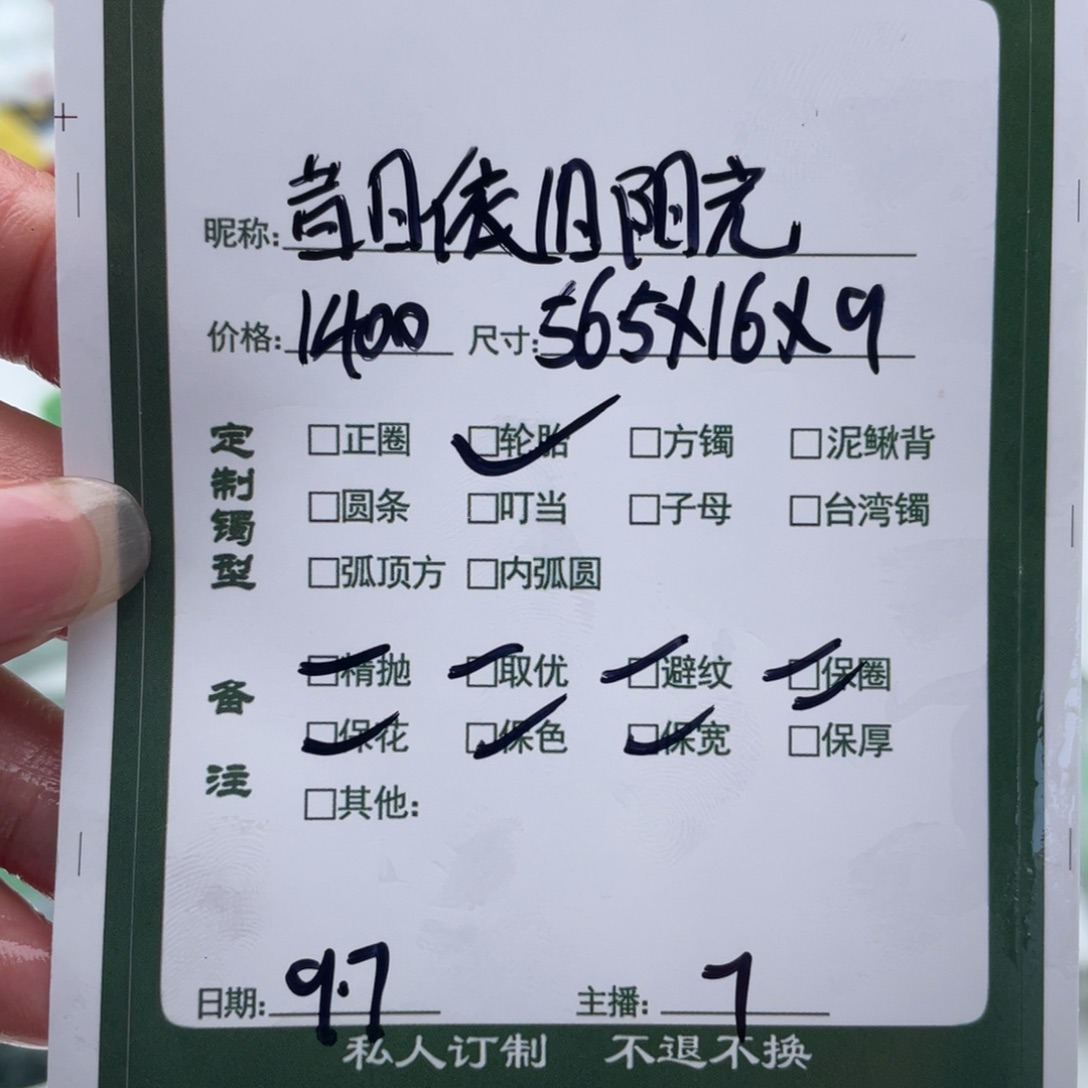 昵称:昔日依旧阳光
价格:1400 尺寸:565X16X9
定制镯型
□正圈 ☑轮胎 □方镯 □泥鳅背
□圆条 □叮当 □子母 □台湾镯
□弧顶方 □内弧圆
备注
☑精抛 ☑取优 ☑避纹 ☑保圈
☑保花 ☑保色 ☑保宽 □保厚
□其他:
日期:9.7 主播:7
私人订制 不退不换